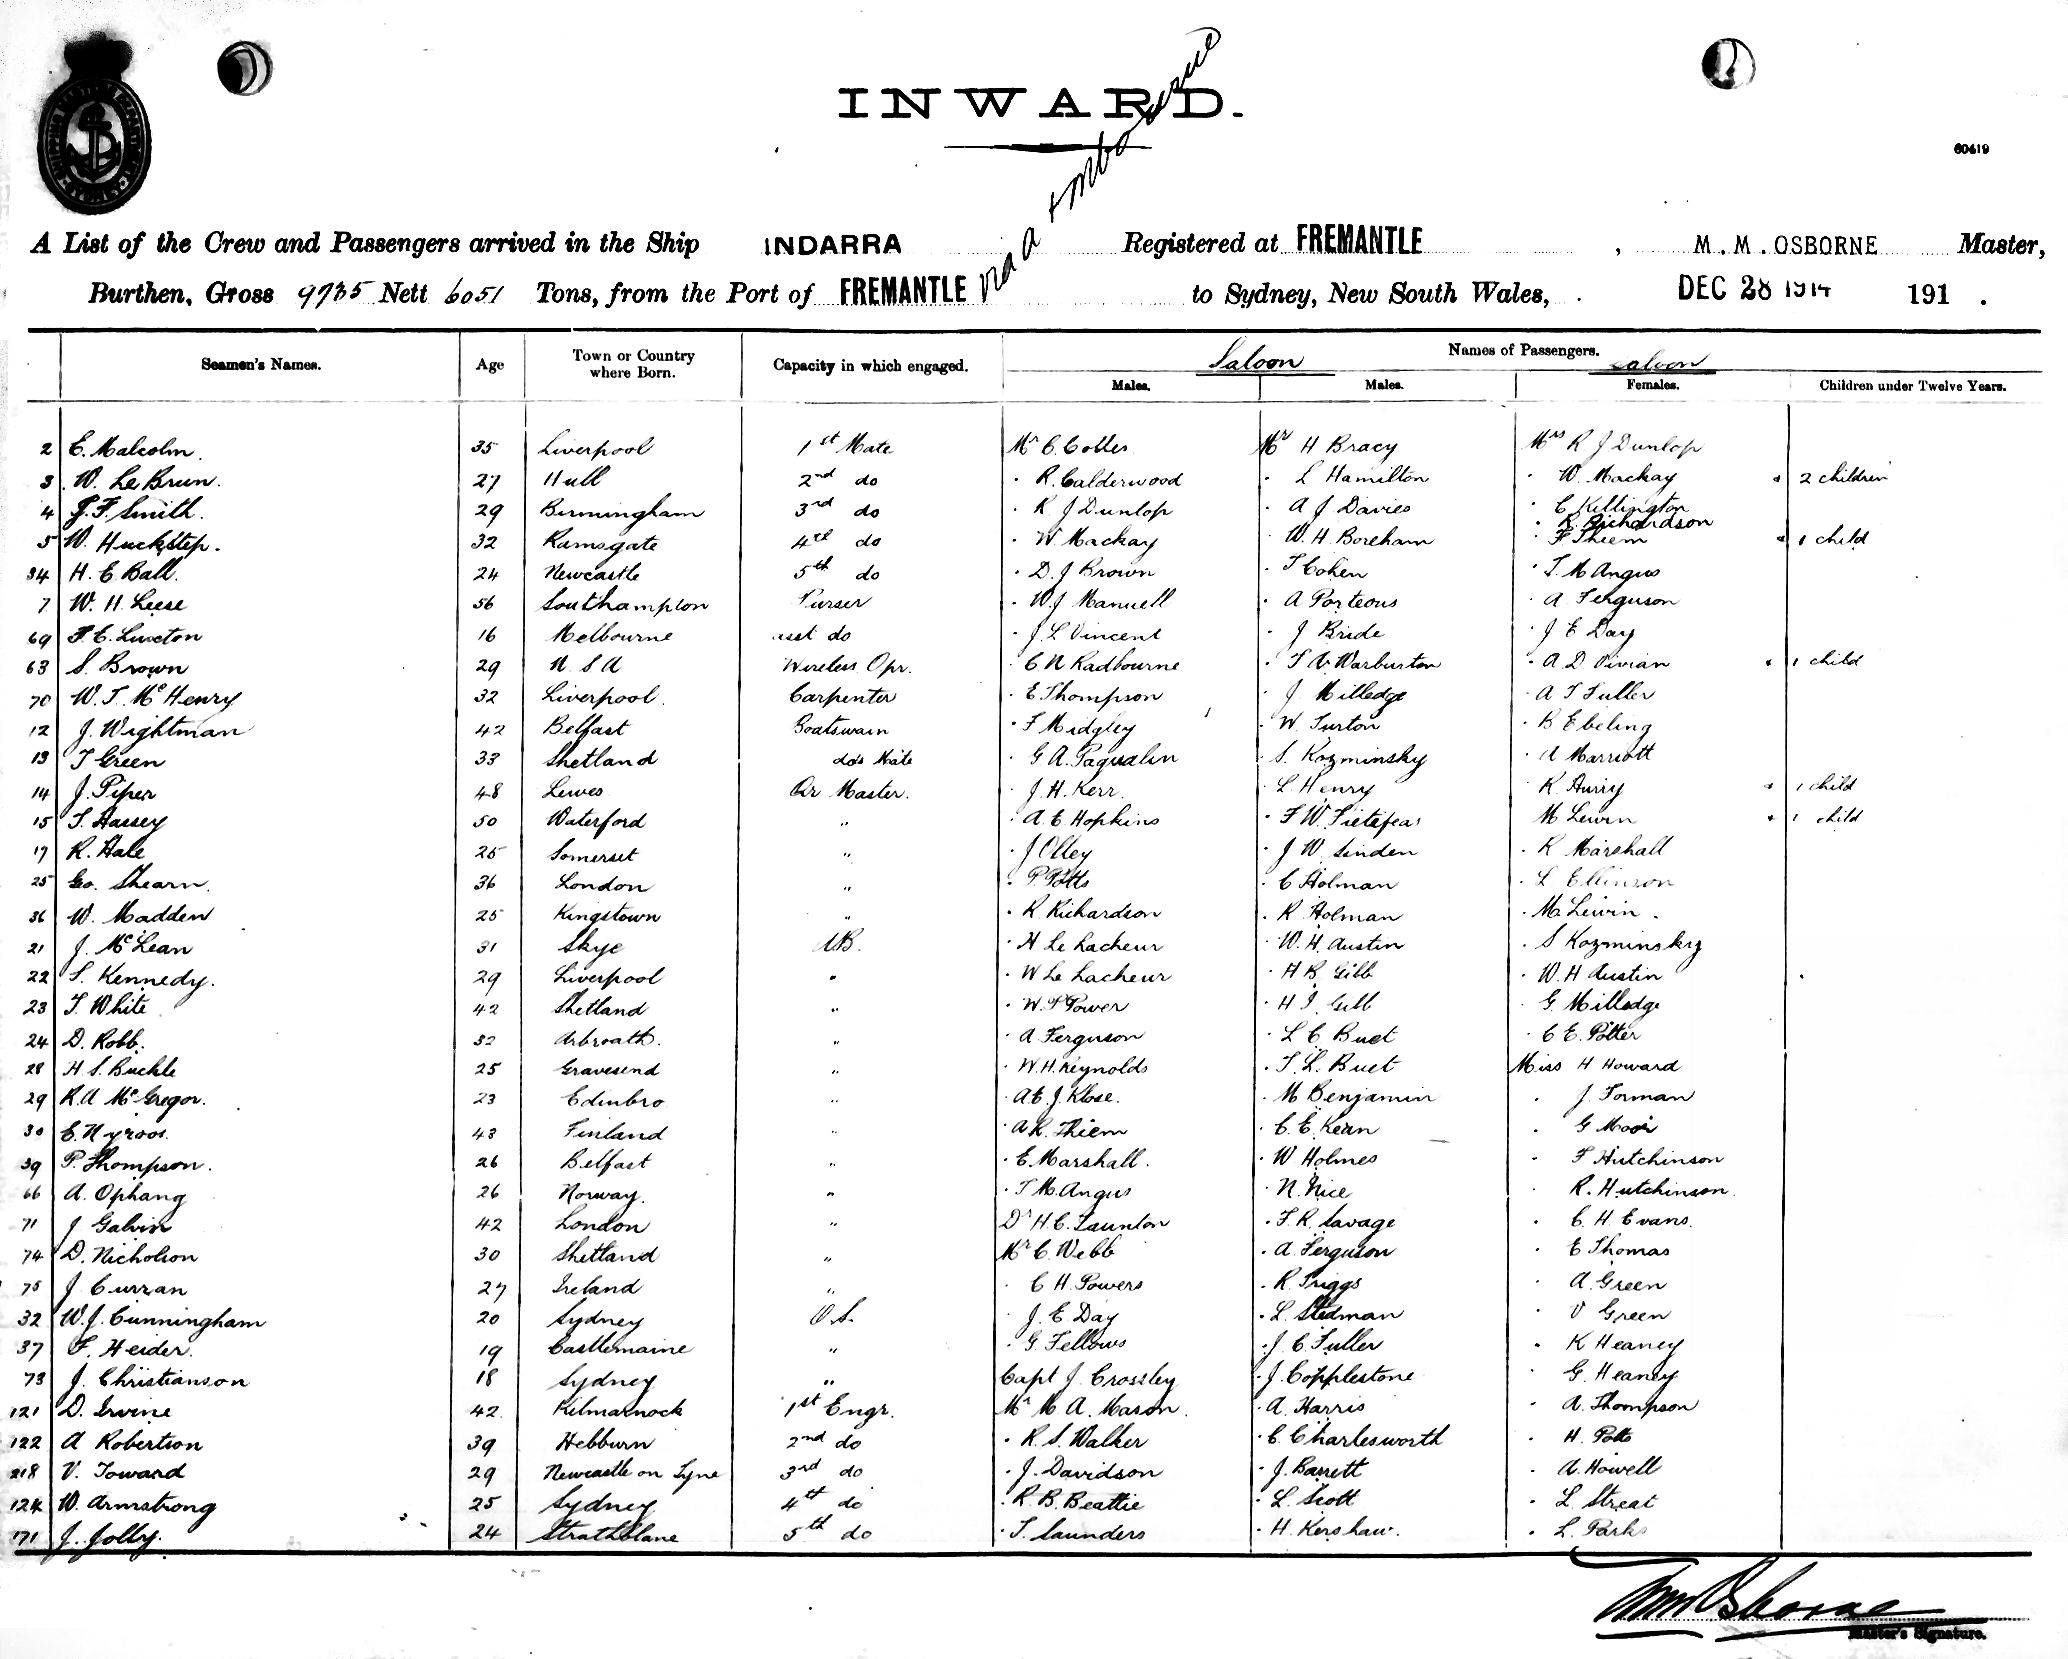 INWARD.
via Melbourne
60419
A List of the Crew and Passengers arrived in the Ship INDARRA Registered at FREMANTLE, M.M. OSBORNE Master,
Burthen, Gross 9735 Nett 6051 Tons, from the Port of FREMANTLE to Sydney, New South Wales, DEC 28 1914 191 .
Seamen's Names. Age Town or Country where Born. Capacity in which engaged. Names of Passengers.
Saloon Saloon
Males. Males. Females. Children under Twelve Years.
2 E. Malcolm. 35 Liverpool 1st Mate Mr C. Cobles Mr H Bracy Mrs R J Dunlop
3 W. Le Brun. 27 Hull 2nd do R. Calderwood L Hamilton W. Mackay 2 children
4 J. F. Smith. 29 Birmingham 3rd do R J Dunlop A J Davies C Killington
R. Richardson
5 W. Huckstep. 32 Ramsgate 4th do W Mackay W. H. Boreham F Thiem 1 child
34 H. E Ball. 24 Newcastle 5th do D. J Brown T Cohen T. M Angus
7 W. H. Leese 56 Southampton Purser W J Manuell A Porteous A Ferguson
69 F. E. Liveton 16 Melbourne asst do J. L Vincent J Bride J E Day
63 S. Brown 29 N. S A Wireless Opr. C N Radbourne T. V. Warburton A. D. Vivian 1 child
70 W. T. McHenry 32 Liverpool. Carpenter E Thompson J Milledge A T Fuller
12 J. Wightman 42 Belfast Boatswain F Midgley W. Turton B Ebeling
13 T Green 33 Shetland do's Mate G A. Paqualin S. Kozminsky A Marriott
14 J. Piper 48 Lewes Qr Master. J. H. Kerr. L Henry R. Airey 1 child
15 T. Hassey 50 Waterford " A. E Hopkins F. W. Tietefeas M Lewin 1 child
17 R. Hale 25 Somerset " J Olley J W. Linden R Marshall
25 Geo. Shearn. 36 London " P. Potts C Holman L Ellinson
36 W. Madden 25 Kingstown " R. Richardson R Holman M. Lewin.
21 J. McLean 31 Skye AB. H Le Lacheur W. H. Austin S Kozminsky
22 S. Kennedy. 29 Liverpool " W Le Lacheur H B Gibb W. H Austin
23 T. White 42 Shetland " W. P Power H J Gibb G. Milledge
24 D. Robb. 32 Arbroath. " A. Ferguson L C Buet C E. Potter
28 H. S. Buckle 25 Gravesend " W. H. Reynolds T. L. Buet Miss H Howard
29 R. A McGregor. 23 Edinbro " A E. J. Klose. M Benjamin J. Forman
30 E. Nyroos. 43 Finland " A R. Thiem C. E. Kean G Moor
39 P. Thompson. 26 Belfast " E. Marshall. W Holmes F Hutchinson
66 A. Ophang 26 Norway. " T M. Angus N. Nice R. Hutchinson.
71 J Galvin 42 London " Dr H. C. Taunton F. R. Savage C. H. Evans.
74 D. Nicholson 30 Shetland " Mr C Webb A. Ferguson E Thomas
75 J Curran 27 Ireland " C H. Powers R. Triggs A. Green
32 W. J. Cunningham 20 Sydney O. S. J. E Day L. Stedman V Green
37 F. Heider. 19 Castlemaine " G. Fellows J. C Fuller K Heaney
73 J. Christianson 18 Sydney " Capt J. Crossley J. Copplestone G. Heaney
121 D. Irvine 42 Kilmarnock 1st Engr. Mr M. A. Mason. A. Harris A. Thompson
122 A Robertson 39 Hebburn 2nd do R. S. Walker C. Charlesworth H. Potts
218 V. Toward 29 Newcastle on Tyne 3rd do J. Davidson J. Barrett A. Howell
124 W. Armstrong 25 Sydney 4th do R. B. Beattie L. Scott L Streat
171 J. Jolly. 24 Strathblane 5th do T. Saunders H. Kershaw. L. Parks
M Osborne
Master's Signature.